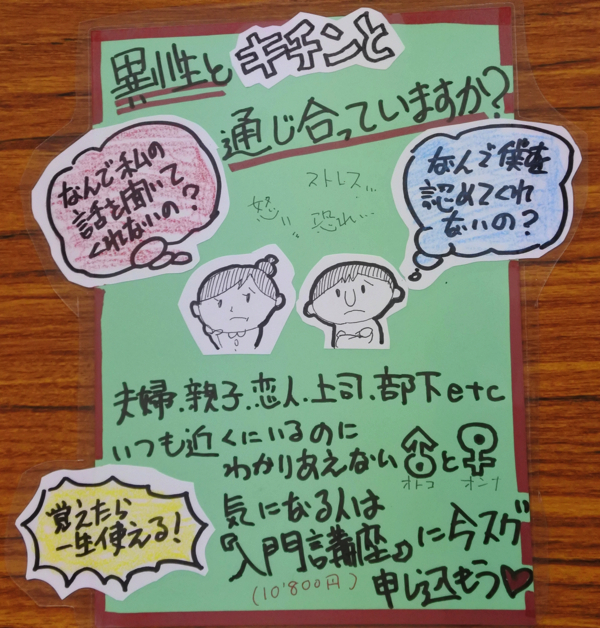 異性とキチンと
通じ合っていますか?
なんで私の
話を聞いて
くれないの?
なんで僕を
認めてくれ
ないの?
ストレス…
怒…
恐れ…
夫婦.親子.恋人.上司.部下etc
いつも近くにいるのに
わかりあえない♂と♀
オトコ オンナ
覚えたら
一生使える!
気になる人は
『入門講座』に今スグ
(10'800円)
申し込もう♥